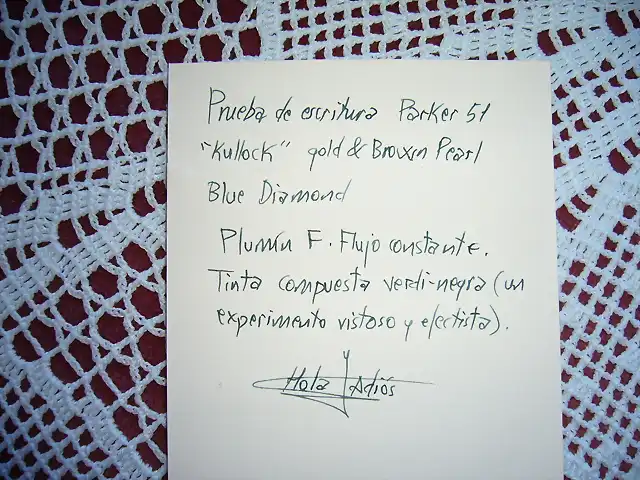 Prueba de escritura Parker 51
"Kullock" gold & Brown Pearl
Blue Diamond
Plumín F. Flujo constante.
Tinta compuesta verdi-negra (un
experimento vistoso y efectista).
Hola y Adiós